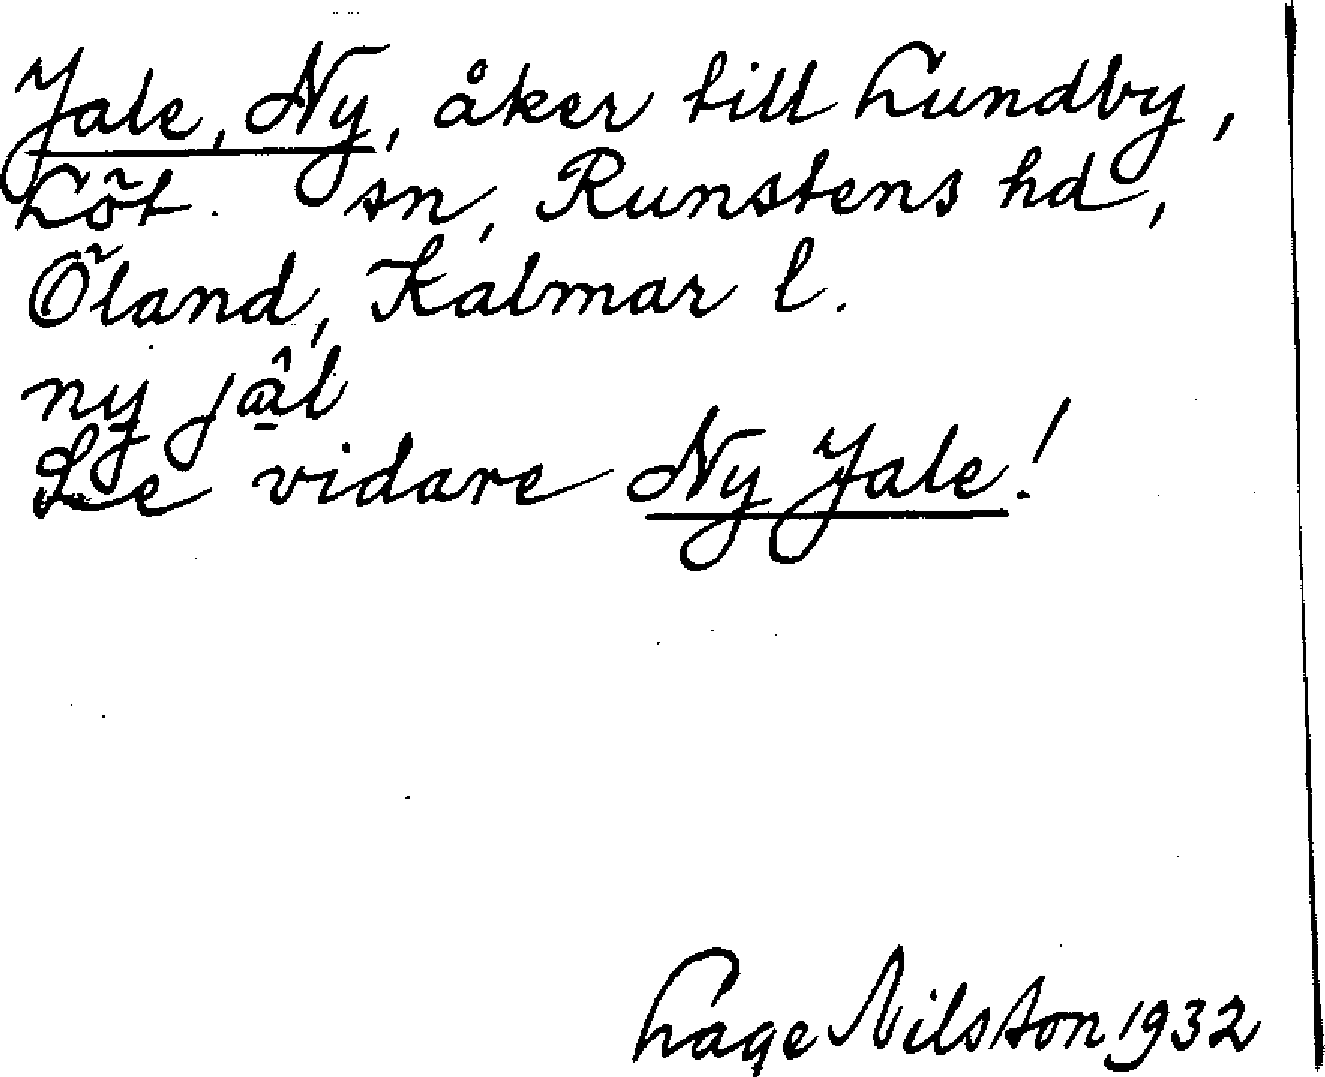 Jale, Ny, åker till Lundby,
Löt. sn, Runstens hd,
Öland, Kalmar l.
ny jâl
Se vidare Ny Jale!
Lage Nilsson 1932